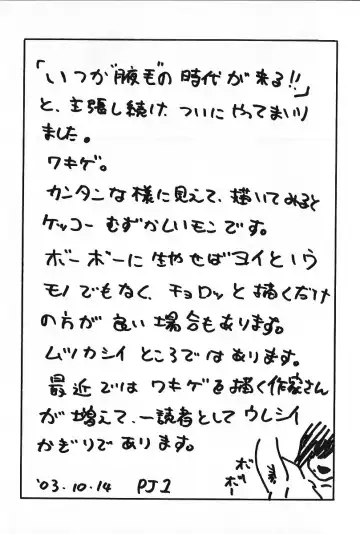 「いつか腋毛の時代が来る!!」
と、主張し続け ついに やってまいり
ました。
ワキゲ。
カンタンな様に見えて、描いてみると
ケッコー むずかしいモンです。
ボーボーに生やせばヨイという
モノでもなく、チョロッと描くだけ
の方が良い場合もあります。
ムツカシイ ところではあります。
最近では ワキゲを描く作家さん
が増えて、一読者として ウレシイ
かぎりであります。
ボ
ボー
'03.10.14 PJ1